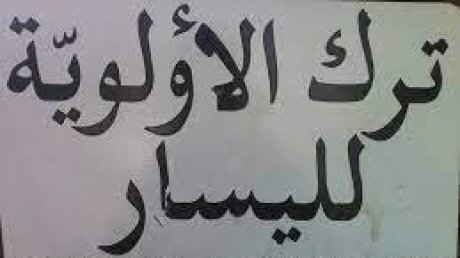 ترك الأولويّة
لليسار